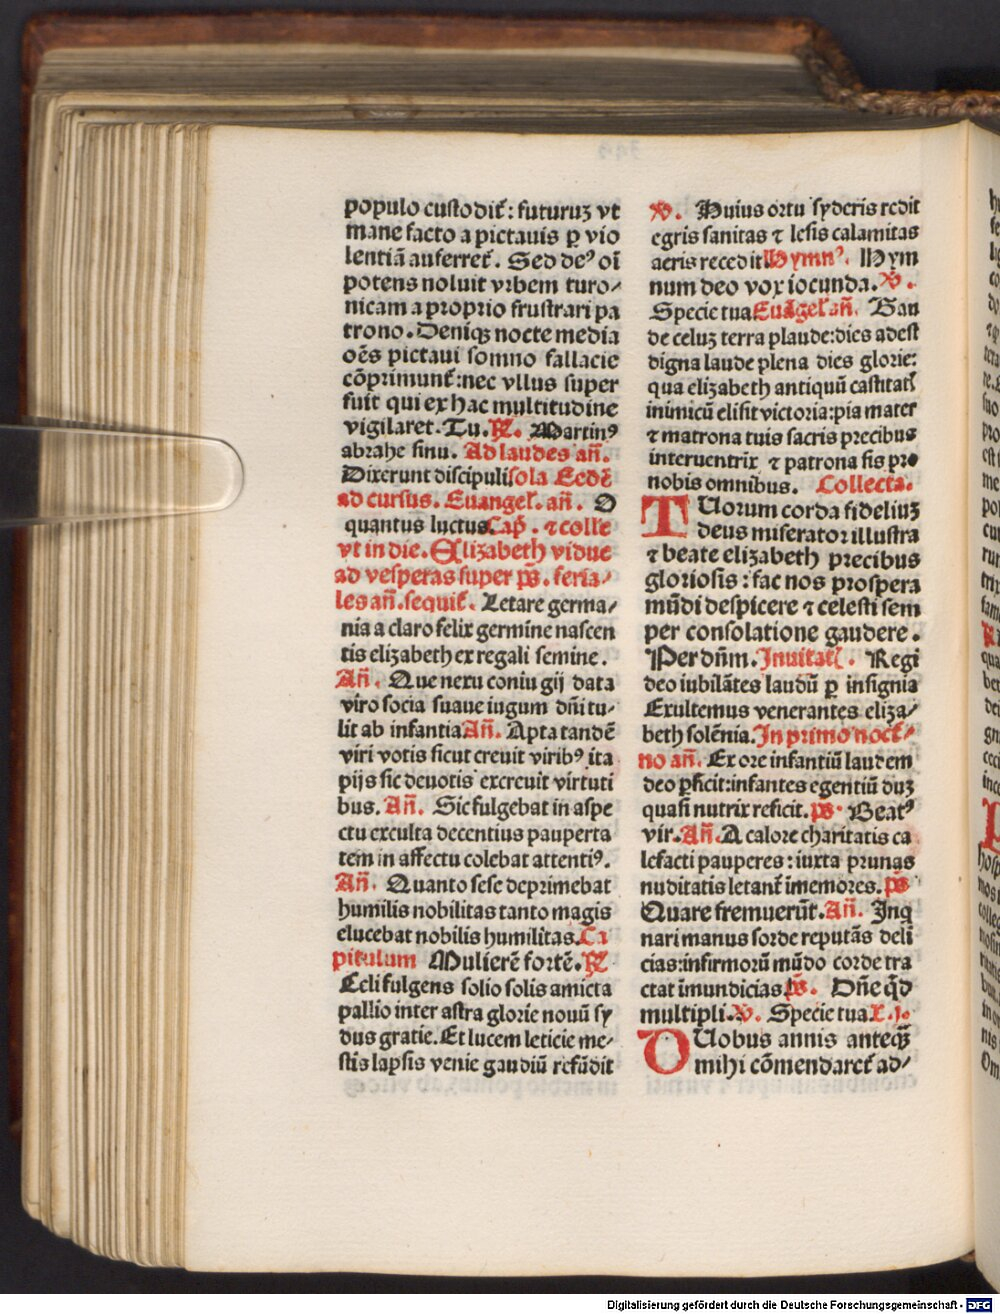 populo custodit᷒: futuruʒ vt
mane facto a pictauis ꝑ vio
lentiā auferret᷒. Sed deꝰ oī
potens noluit vrbem turo⸗
nicam a proprio frustrari pa
trono. Deniqʒ nocte media
oēs pictaui somno fallacie
cōprimunt᷒: nec vllus super
fuit qui ex hac multitudine
vigilaret. Tu. ℟. Martinꝰ
abrahe sinu. Ad laudes an̄.
Dixerunt discipuli sola Eedē
ad cursus. Euangel᷒. an̄. O
quantus luctus. Cap̄. ⁊ colle
vt in die. Elizabeth vidue
ad vesperas super p̄s. feria⸗
les an̄. sequit᷒. Letare germa⸗
nia a claro felix germine nascen
tis elizabeth ex regali semine.
An̄. Que nexu coniugij data
viro socia suaue iugum dn̄i tu⸗
lit ab infantia An̄. Apta tandē
viri votis sicut creuit viribꝰ ita
pijs sic deuotis excreuit virtuti
bus. An̄. Sic fulgebat in aspe
ctu exculta decentius pauperta
tem in affectu colebat attentiꝰ.
An̄. Quanto sese deprimebat
humilis nobilitas tanto magis
elucebat nobilis humilitas. Ca
pitulum Mulierē fortē. ℟
Ecli fulgens solio solis amicta
pallio inter astra glorie nouū sy
dus gratie. Et lucem leticie me⸗
stis lapsis venie gaudiū refūdit
℣. Huius ortu syderis redit
egris sanitas ⁊ lesis calamitas
aeris recedit Hymnꝰ. Hym
num deo vox iocunda. ℣.
Specie tua Euāgel᷒ an̄. Gau
de celuʒ terra plaude: dies adest
digna laude plena dies glorie:
qua elizabeth antiquū castitat᷒
inimicū elisit victoria: pia mater
⁊ matrona tuis sacris precibus
interuentrix ⁊ patrona sis pro
nobis omnibus. Collecta.
TUorum corda fideliuʒ
deus miserator illustra
⁊ beate elizabeth precibus
gloriosis: fac nos prospera
mūdi despicere ⁊ celesti sem
per consolatione gaudere.
Per dn̄m. Inuitat᷒. Regi
deo iubilātes laudū ꝑ insignia
Exultemus venerantes eliza⸗
beth solēnia. In primo noct᷒⸗
no an̄. Ex ore infantiū laudem
deo ꝑficit: infantes egentiū duʒ
quasi nutrix reficit. p̄s. Beatꝰ
vir. An̄. A calore charitatis ca
lefacti pauperes: iuxta prunas
nuditatis letant᷒ imemores. p̄s
Quare fremuerūt. An̄. Inq
nari manus sorde reputās deli
cias: infirmorū mūdo corde tra
ctat imundicias p̄s. Dn̄e qd̄
multipli. ℣. Specie tua L. j.
DUobus annis anteqʒ
mihi cōmendaret᷒ ad⸗
Digitalisierung gefördert durch die Deutsche Forschungsgemeinschaft - DFG